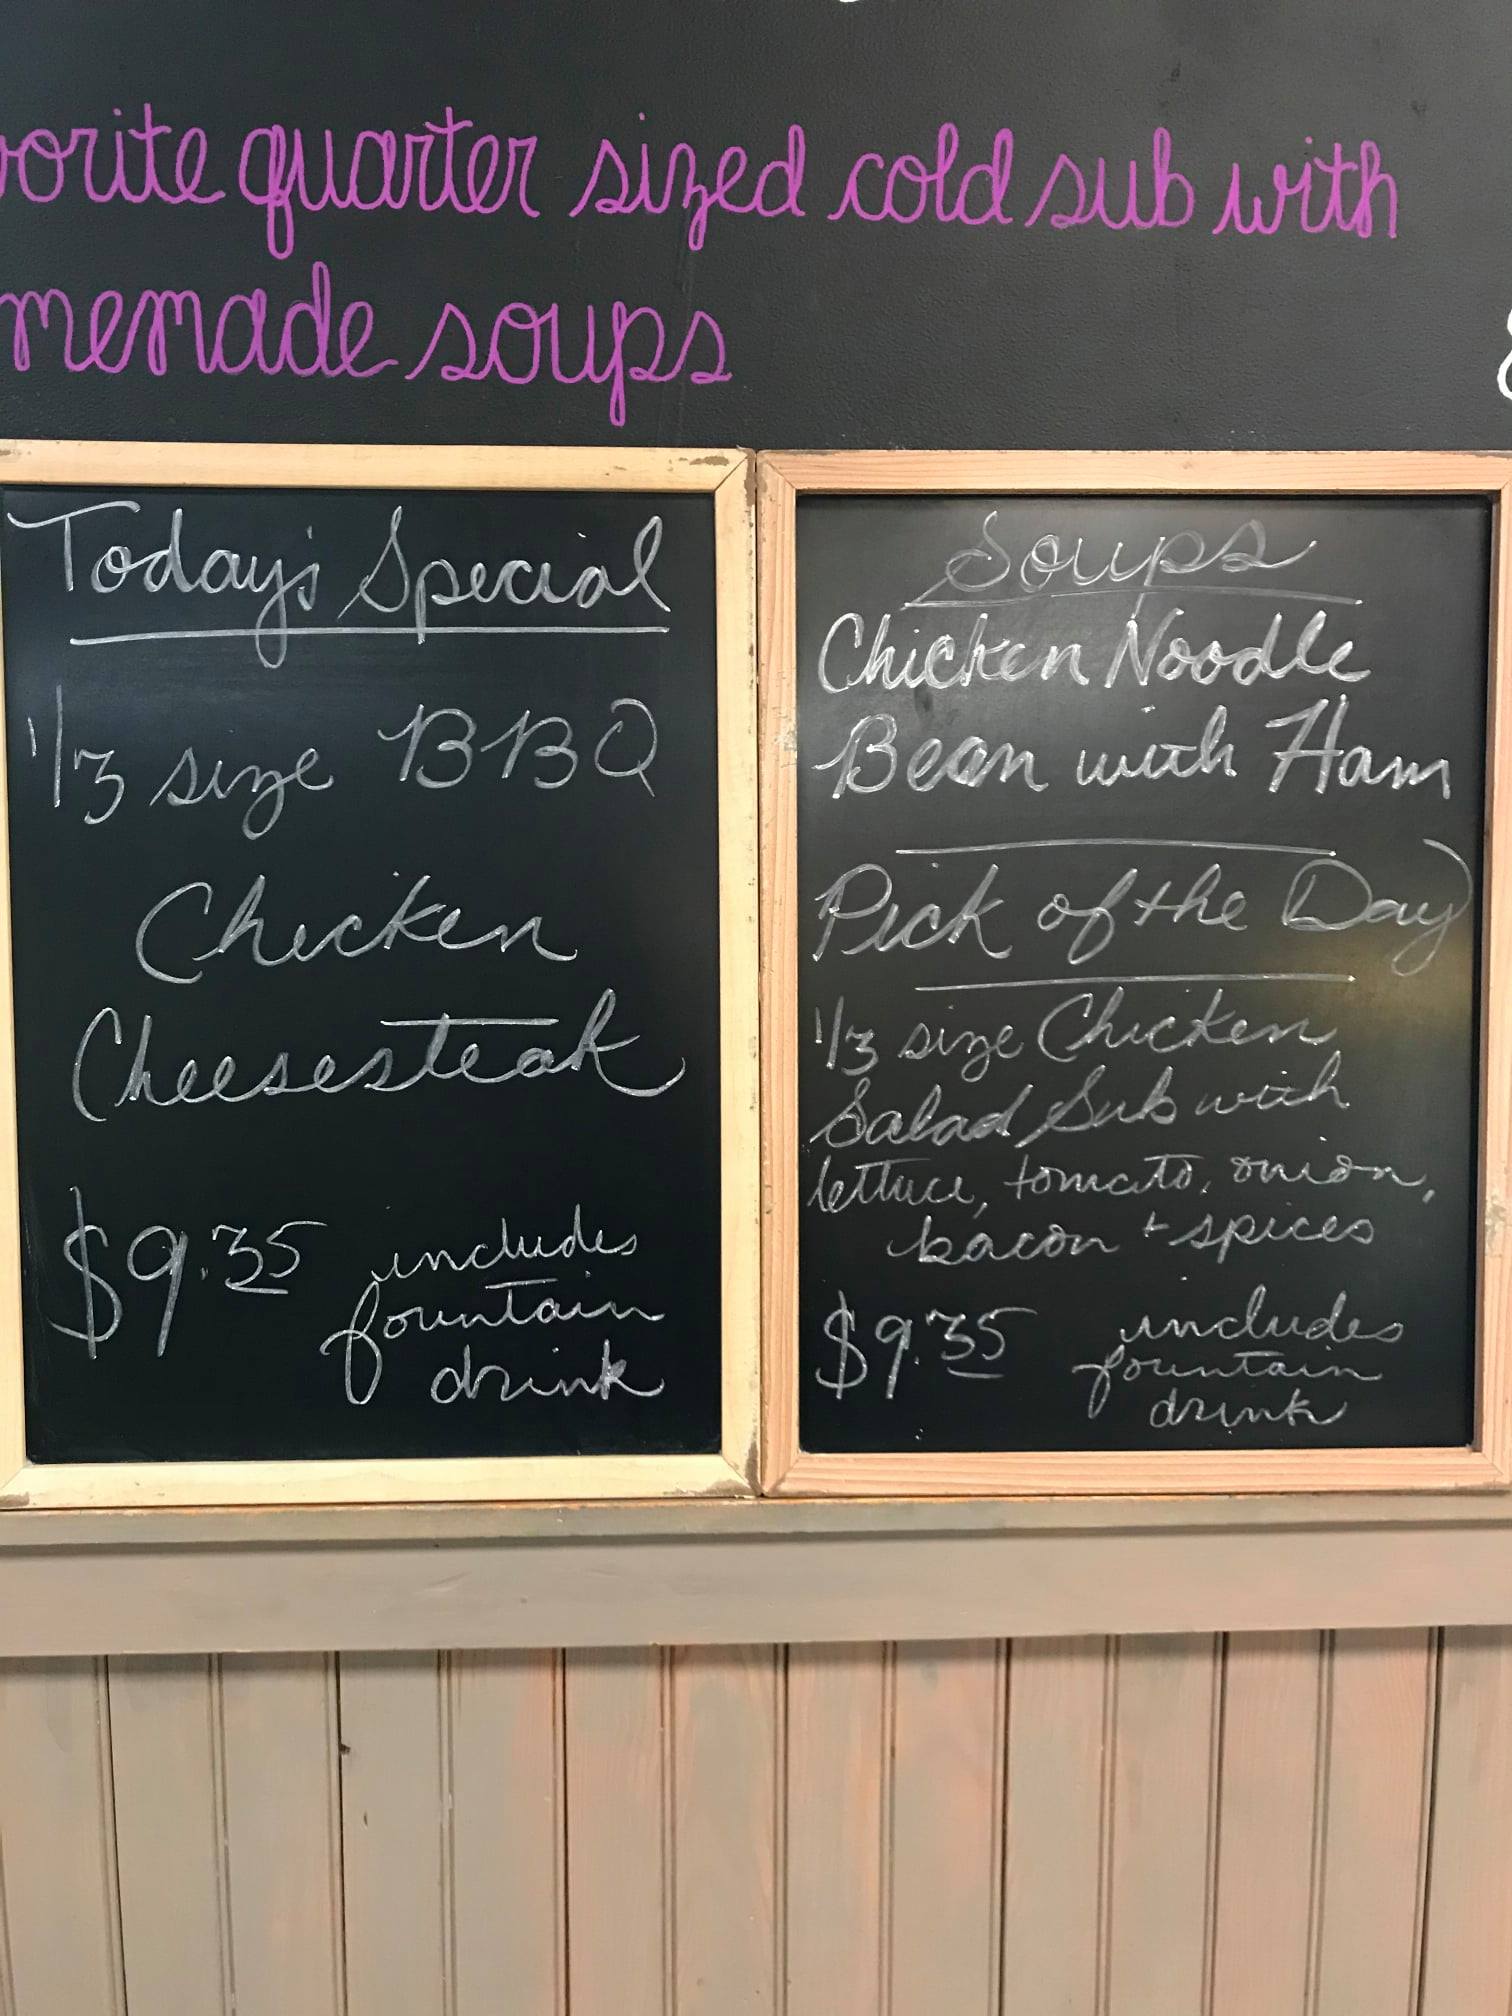 vorite quarter sized cold sub with
memade soups
Today's Special
1/3 size BBQ
Chicken
Cheesesteak
$9.35 includes
fountain
drink
Soups
Chicken Noodle
Bean with Ham
Pick of the Day
1/3 size Chicken
Salad Sub with
lettuce, tomato, onion,
bacon + spices
$9.35 includes
fountain
drink